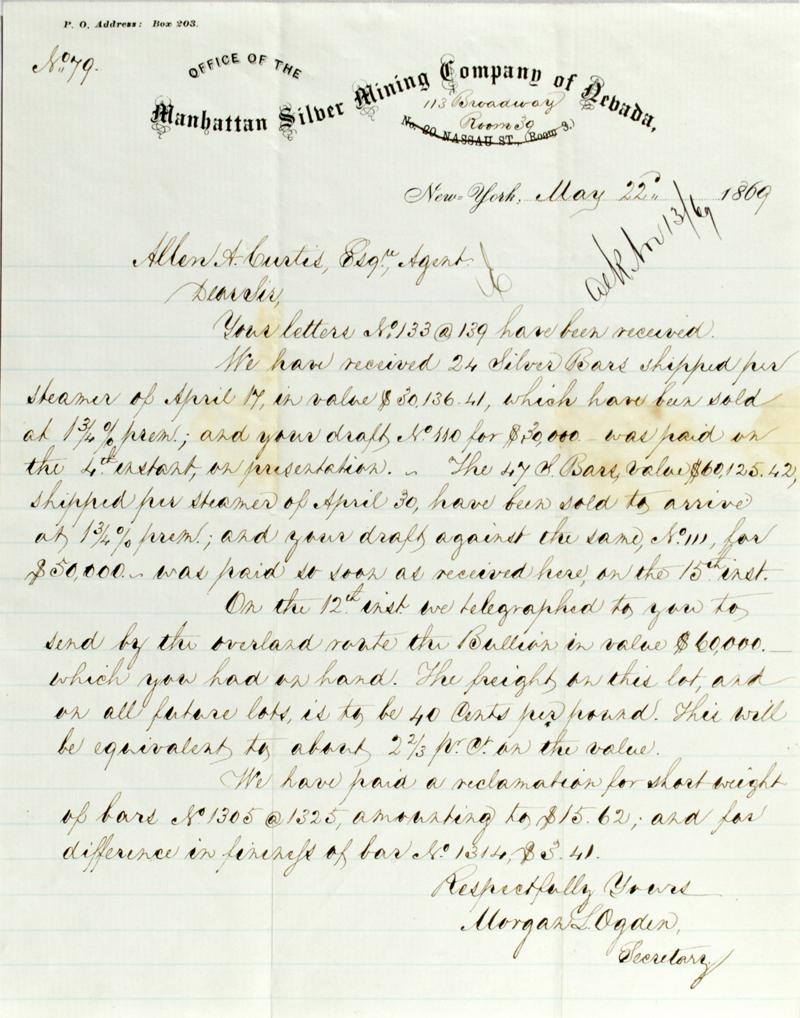 P. O. Address: Box 203.
No. 79.
OFFICE OF THE
Manhattan Silver Mining Company of Nevada,
113 Broadway
Room 39
No. 20 NASSAU ST., (Room 3.)
New-York, May 22d. 1869
Allen A. Curtis, Esqre, Agent.
Dear Sir,
Your letters No. 133 @ 139 have been received.
We have received 24 Silver Bars shipped per
steamer of April 17, in value $30,136.41, which have been sold
at 1 3/4 % prem.; and your draft No. 110 for $30,000 - was paid on
the 4th instant, on presentation. ~ The 47 S. Bars, value $60,125.42,
shipped per steamer of April 30, have been sold to arrive
at 1 3/4 % prem.; and your draft against the same, No. 111, for
$50,000. ~ was paid so soon as received here, on the 15th inst.
On the 12th inst we telegraphed to you to
send by the overland route the Bullion in value $60,000. —
which you had on hand. The freight on this lot, and
on all future lots, is to be 40 Cents per pound. This will
be equivalent to about 2 2/3 pr. Ct. on the value.
We have paid a reclamation for short weight
of bars No 1305 @ 1325, amounting to $15.62; and for
difference in fineness of bar No. 1314, $3.41.
Respectfully Yours
Morgan L. Ogden,
Secretary